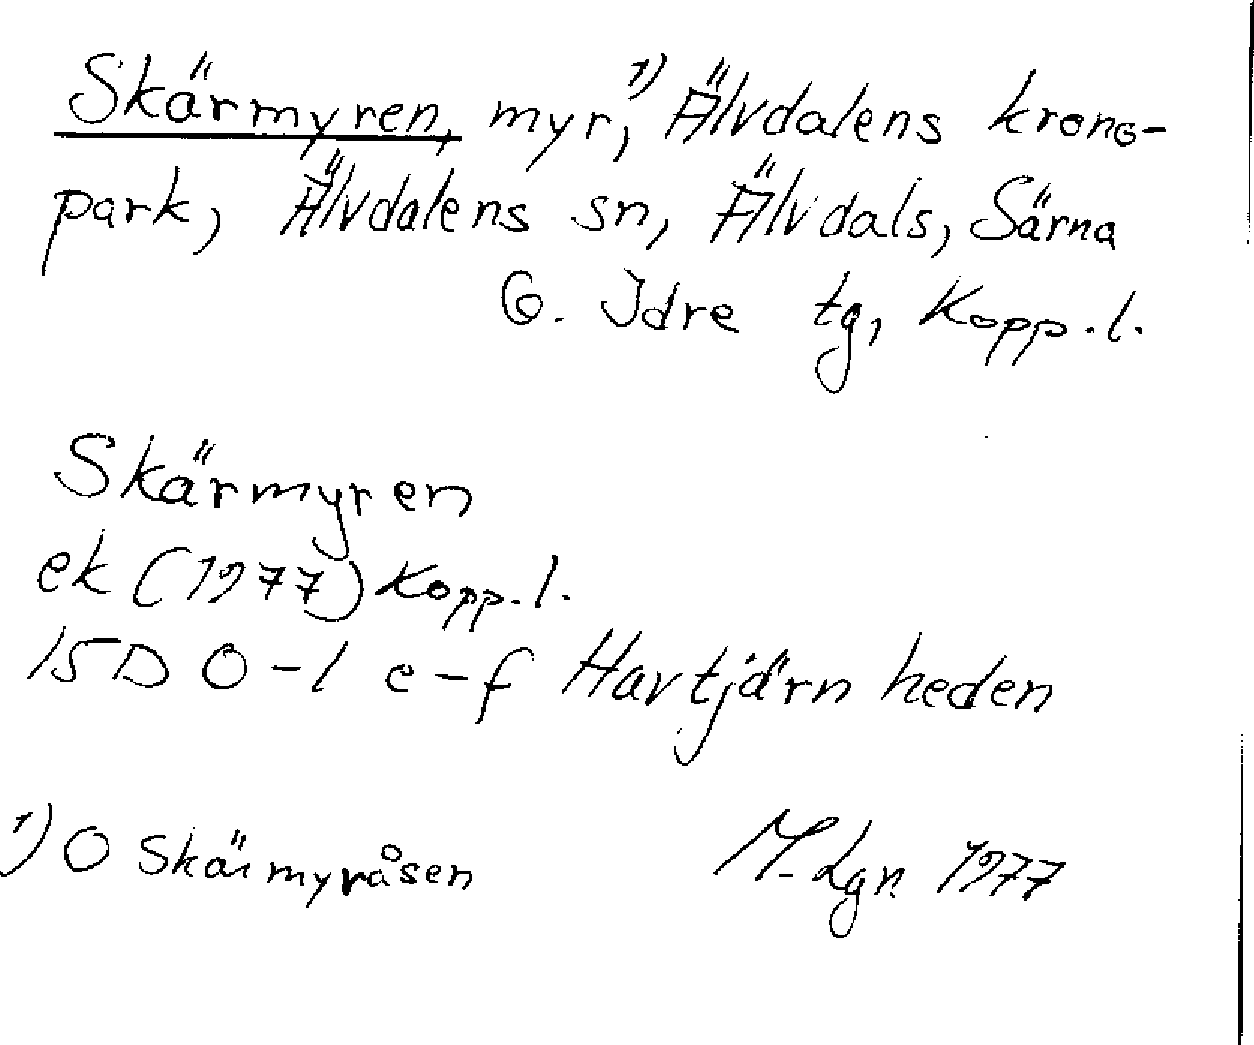 Skärmyren, myr,¹⁾ Älvdalens krono-
park, Älvdalens sn, Älvdals, Särna
o. Idre tg, Kopp.l.
Skärmyren
ek (1977) Kopp.l.
15D 0-1 e-f Havtjärnheden
1) O Skärmyråsen
M. Lgn 1977